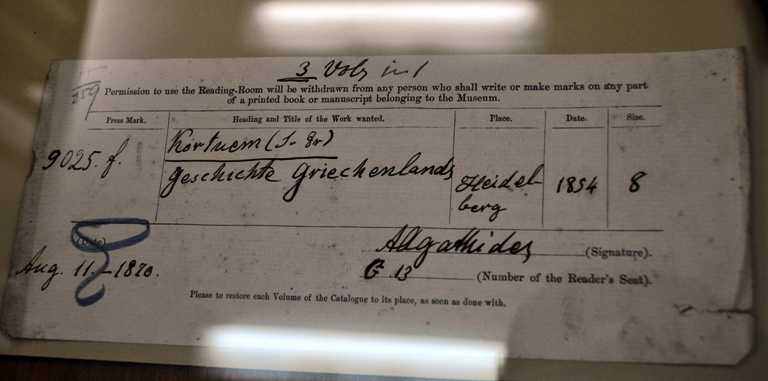 3 Vols in 1
359
Permission to use the Reading-Room will be withdrawn from any person who shall write or make marks on any part
of a printed book or manuscript belonging to the Museum.
Press Mark. Heading and Title of the Work wanted. Place. Date. Size.
9025. f. Kortuem (J- Fr)
Geschichte Griechenlands Heidel-
berg 1854 8
(Date)
Aug. 11. - 1870.
(Signature).
G 13 (Number of the Reader's Seat).
Please to restore each Volume of the Catalogue to its place, as soon as done with.